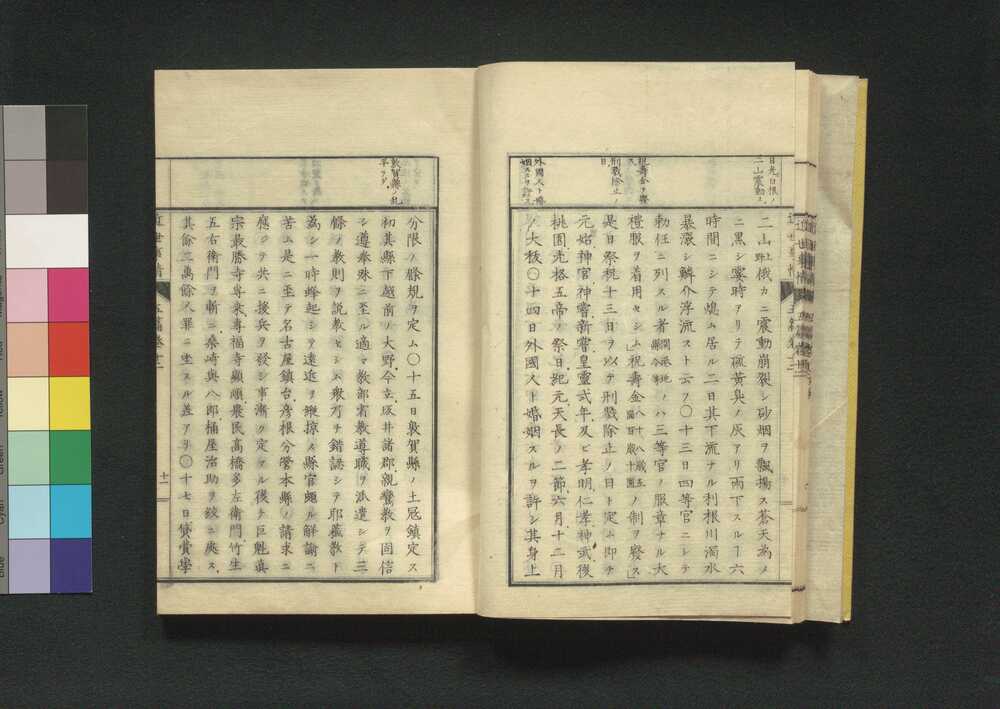 日光白根ノ
二山震動ス
祝壽金ヲ廢
ス
刑戮除止ノ
日
外國人ト婚
姻スルヲ許ス
二山野祉俄カニ震動崩裂シ砂烟ヲ飄揚ス蒼天為ノ
ニ黒シ霎時アリテ硫黄臭ノ灰アリ雨下スルヿ六
時間ニシテ熄ム居ル二日其下流ナル利根川濁水
暴漲シ鱗介浮流スト云フ〇十三日四等官ニシテ
勅任ニ列スル者ノハ三等官ノ服章ナル大
禮服ヲ着用セシム「祝壽金八十八歳五圓百歳十圓ノ制ヲ癈ス」
是日祭祝十三日ヲ以テ刑戮除止ノ日ト定ム即チ
元始神官神甞新甞皇靈式年及ヒ孝明仁孝神武後
桃園光格五帝ノ祭日紀元天長ノ二節六月十二月
ノ大秡〇十四日外國人ト婚姻スルヲ許シ其身上
敦賀縣ノ乱
平ラグ
分限ノ條規ヲ定ム〇十五日敦賀縣ノ土冦鎮定ス
初其縣下越前ノ大野今立坂井諸郡親鸞教ヲ固信
シ遵奉殊ニ至ル適マ教部省教導職ヲ派遣シテ三
條ノ教則ヲ説教セシム衆乃チ錯認シテ耶蘓教ト
為シ一時蜂起シテ遠近ヲ鹵掠ス縣官頗ル解諭ニ
苦ム是ニ至テ名古屋鎮台彦根分營本縣ノ請求ニ
應シテ共ニ援兵ヲ發シ事漸ク定マル後チ巨魁真
宗最勝寺専乗専福寺顯順農民高橋多左衛門竹生
五右衛門ヲ斬ニ桑﨑與八郎桶屋治助ヲ絞ニ處ス
其餘二萬餘人罪ニ坐スル差アリ〇十七日貸賞學
近世事情
十一